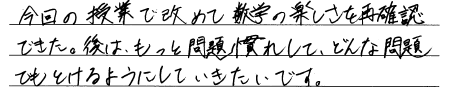 今回の授業で改めて数学の楽しさを再確認
できた。後は、もっと問題慣れして、どんな問題
でもとけるようにしていきたいです。